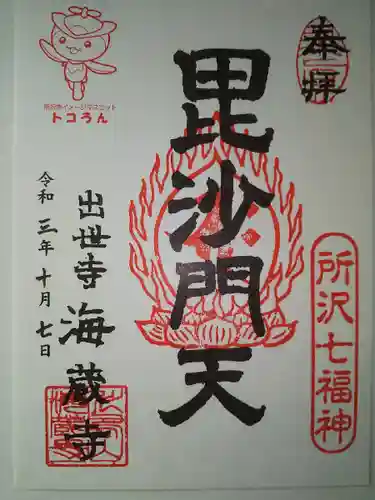 奉拝
所沢七福神
毘沙門天
出世寺 海蔵寺
令和三年十月七日
所沢市イメージマスコット
トコろん